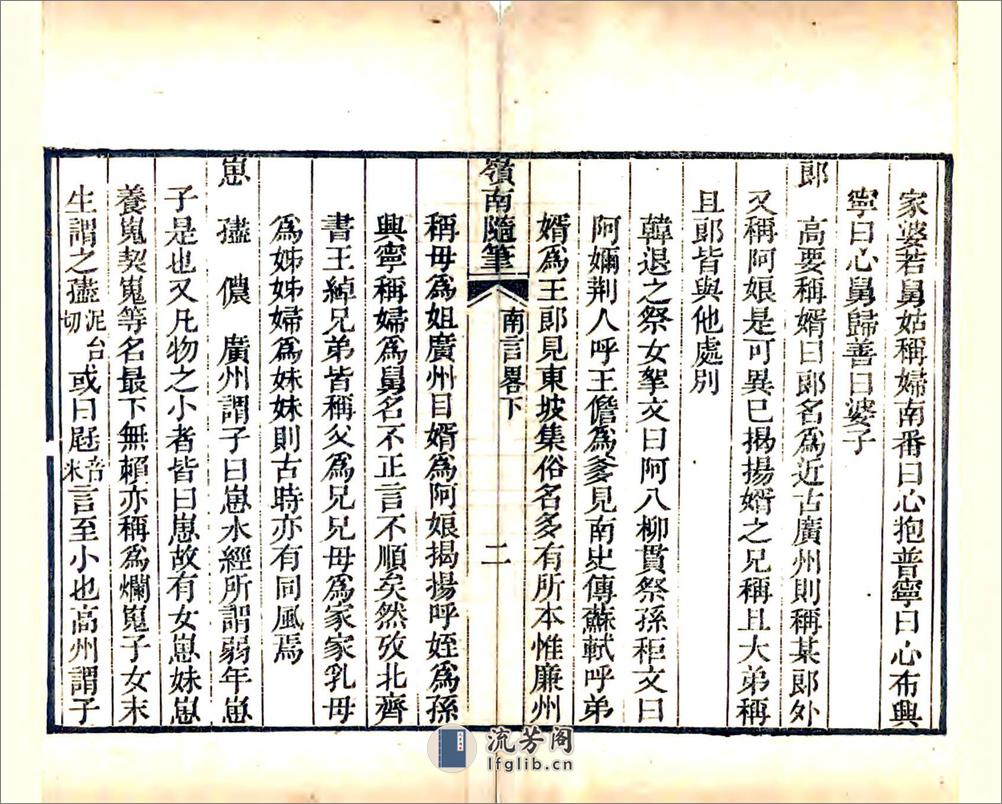 家婆若舅姑稱婦南番曰心抱普寧曰心布興
寧曰心舅歸善曰婆子
郎　高要稱婿曰郎名爲近古廣州則稱某郎外
又稱阿娘是可異已揭揚婿之兄稱且大弟稱
且郎皆與他處別
韓退之祭女挐文曰阿八柳貫祭孫秬文曰
阿嬭荆人呼王儋爲爹見南史傳蘇軾呼弟
婿爲王郎見東坡集俗名多有所本惟廉州
嶺南隨筆　南言畧下　二
稱母爲姐廣州目婿爲阿娘揭揚呼姪爲孫
興寧稱婦爲舅名不正言不順矣然攷北齊
書王綽兄弟皆稱父爲兄兄母爲家家乳母
爲姊姊婦爲妹妹則古時亦有同風焉
崽　孻　儂　廣州謂子曰崽水經所謂弱年崽
子是也又凡物之小者皆曰崽故有女崽妹崽
養嵬契嵬等名最下無賴亦稱爲爛嵬子女末
生謂之孻泥台切或曰屘音米言至小也高州謂子
流芳阁
lfglib.cn